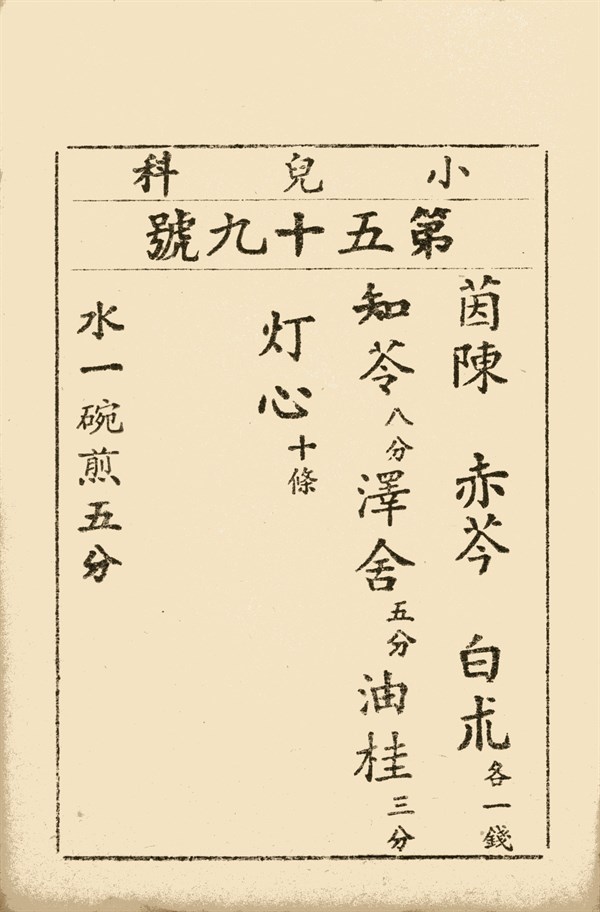 小兒科
第五十九號
茵陳 赤芩 白朮各一錢
知苓八分澤舍五分油桂三分
灯心十條
水一碗煎五分